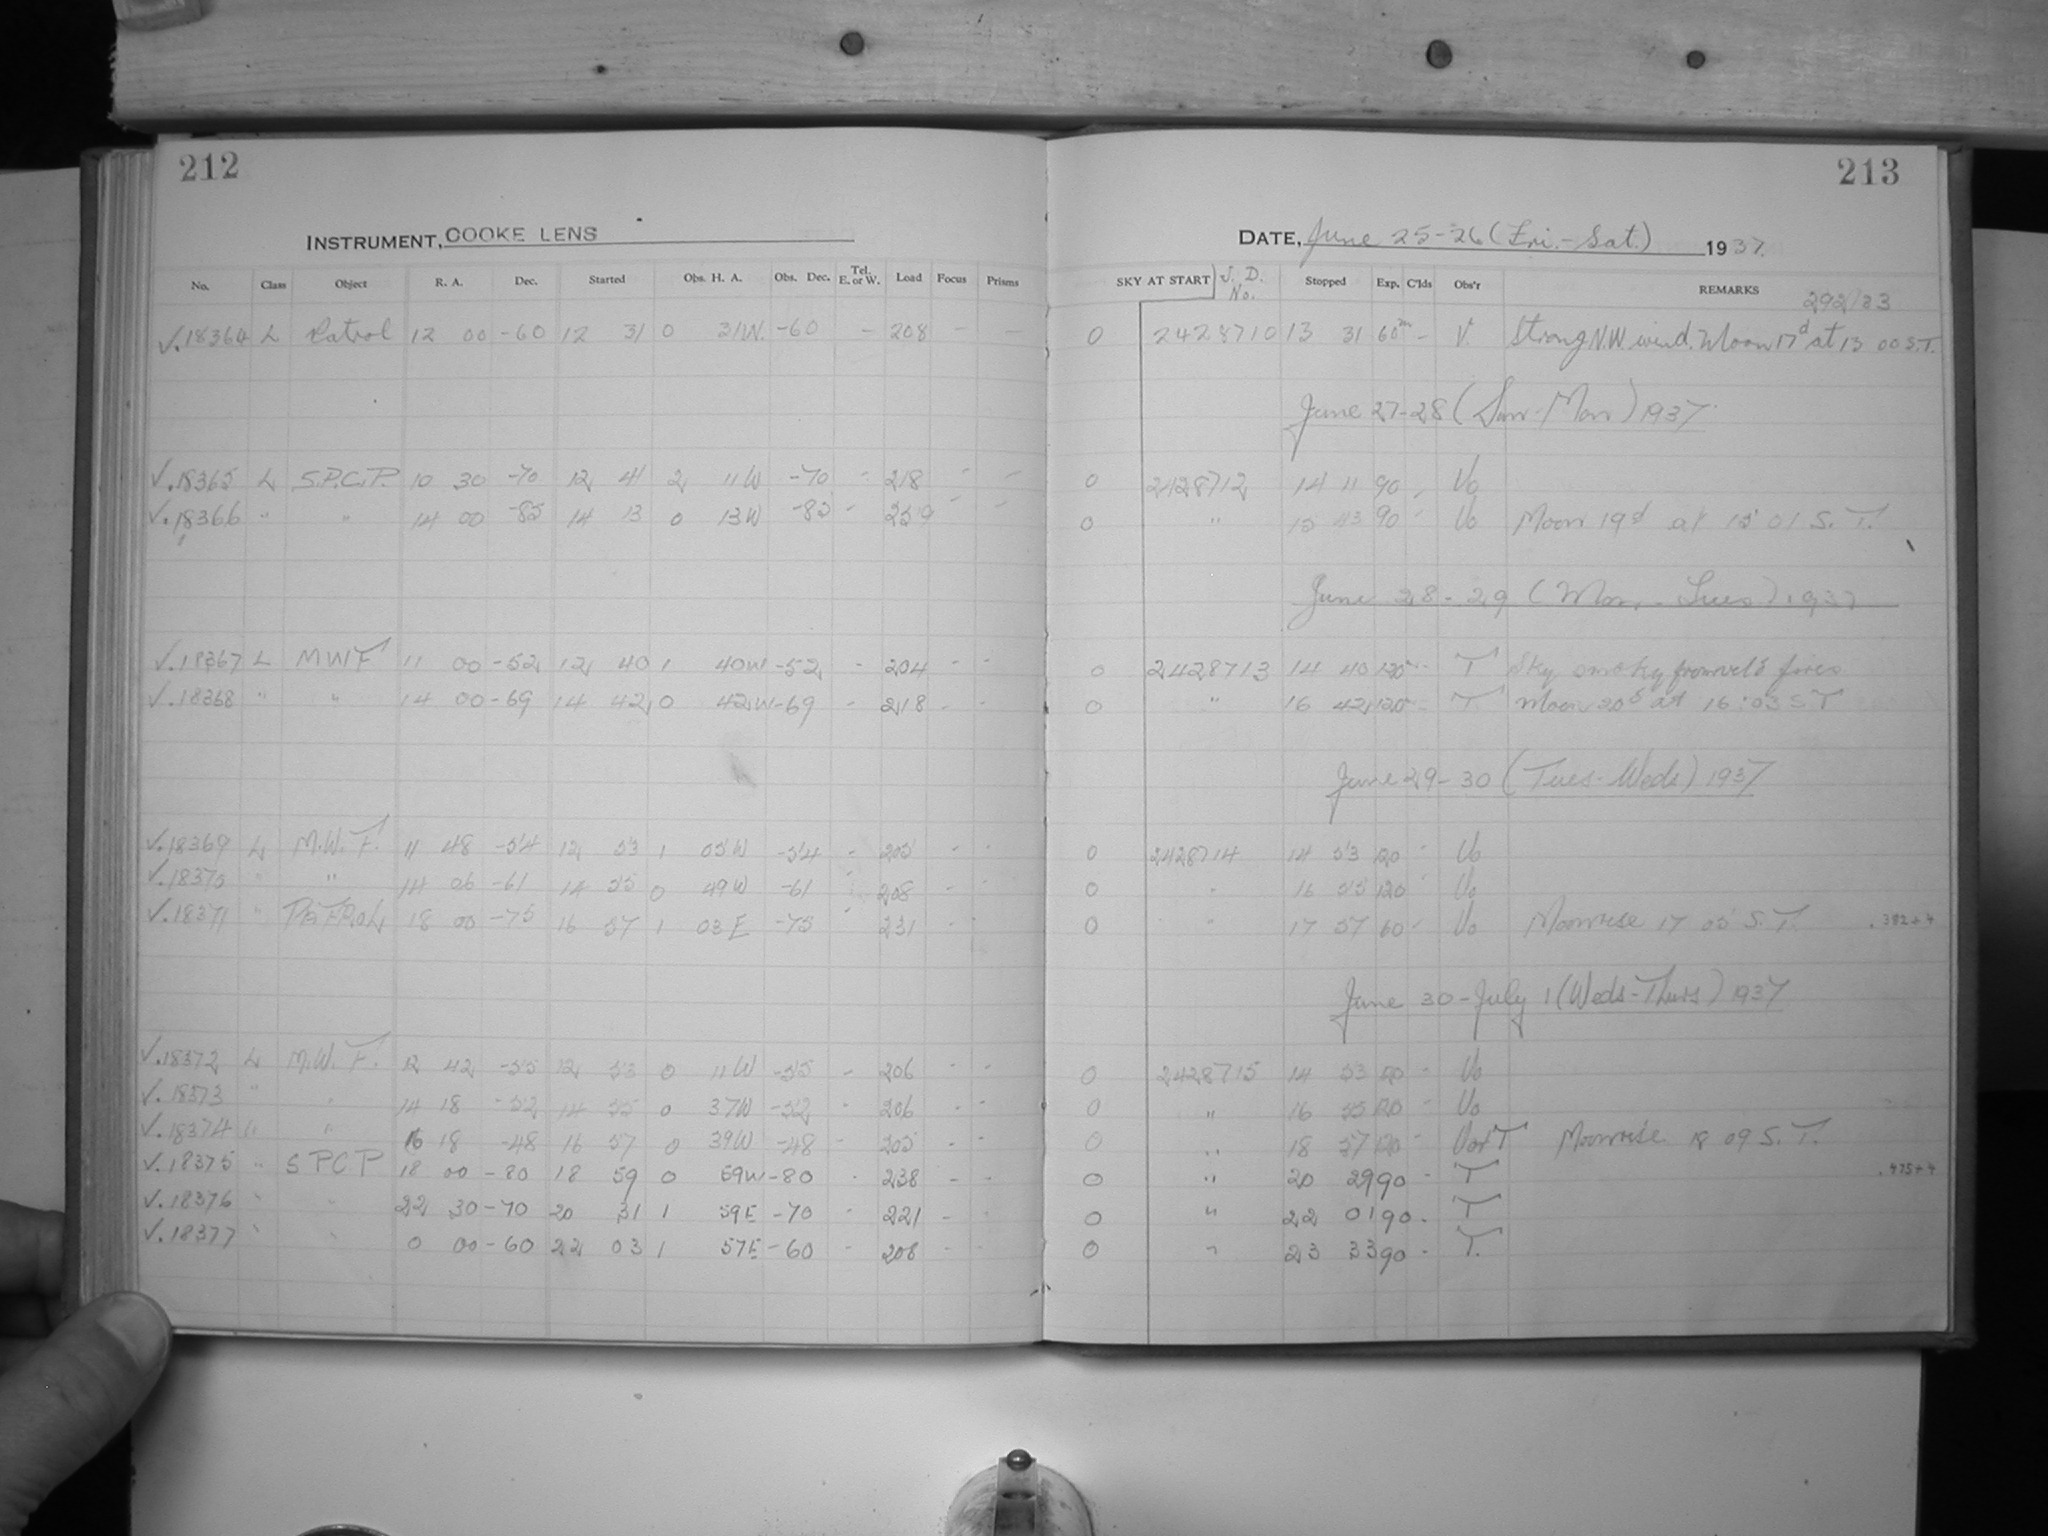 212
213
INSTRUMENT, COOKE LENS
DATE, June 25-26 (Fri.-Sat.) 1937.
No. Class Object R. A. Dec. Started Obs. H. A. Obs. Dec. Tel. E. or W. Load Focus Prisms SKY AT START J. D. No. Stopped Exp. C'lds Obs'r REMARKS
292/83
√.18364 L Patrol 12 00 -60 12 31 0 31W. -60 - 208 - - 0 2428710 13 31 60m - V. Strong N.W wind. Moon 17d at 13 00 S.T.
June 27-28 (Sun-Mon) 1937.
√.18365 L S.P.C.P. 10 30 -70 12 41 2 11W -70 - 218 - - 0 2428712 14 11 90 - Vo
√.18366 " " 14 00 -85 14 13 0 13W -85 - 259 - - 0 " 15 43 90 - Vo Moon 19d at 15 01 S.T.
June 28-29 (Mon. - Tues) 1937
√.18367 L MWF 11 00 -52 12 40 1 40W -52 - 204 - - 0 2428713 14 40 120 - T Sky smoky from veld fires
√.18368 " " 14 00 -69 14 42 0 42W -69 - 218 - - 0 " 16 42 120 - T Moon 20d at 16:03 S T
June 29-30 (Tues-Weds) 1937
√.18369 L M.W.F. 11 48 -54 12 53 1 05W -54 - 205 - - 0 2428714 14 53 120 - Vo
√.18370 " " 14 06 -61 14 55 0 49W -61 - 208 - - 0 " 16 55 120 - Vo
√.18371 " PATROL 18 00 -75 16 57 1 03E -75 - 231 - - 0 " 17 57 60 - Vo Moonrise 17 05 S.T. .382+4
June 30-July 1 (Weds-Thurs) 1937
√.18372 L M.W.F. 12 42 -55 12 53 0 11W -55 - 206 - - 0 2428715 14 53 120 - Vo
√.18373 " " 14 18 -52 14 55 0 37W -52 - 206 - - 0 " 16 55 120 - Vo
√.18374 " " 16 18 -48 16 57 0 39W -48 - 205 - - 0 " 18 57 120 - Vo+T Moonrise 18 09 S.T.
√.18375 " S P C P 18 00 -80 18 59 0 59W -80 - 238 - - 0 " 20 29 90 - T .475+4
√.18376 " " 22 30 -70 20 31 1 59E -70 - 221 - - 0 " 22 01 90 - T
√.18377 " " 0 00 -60 22 03 1 57E -60 - 208 - - 0 " 23 33 90 - T.